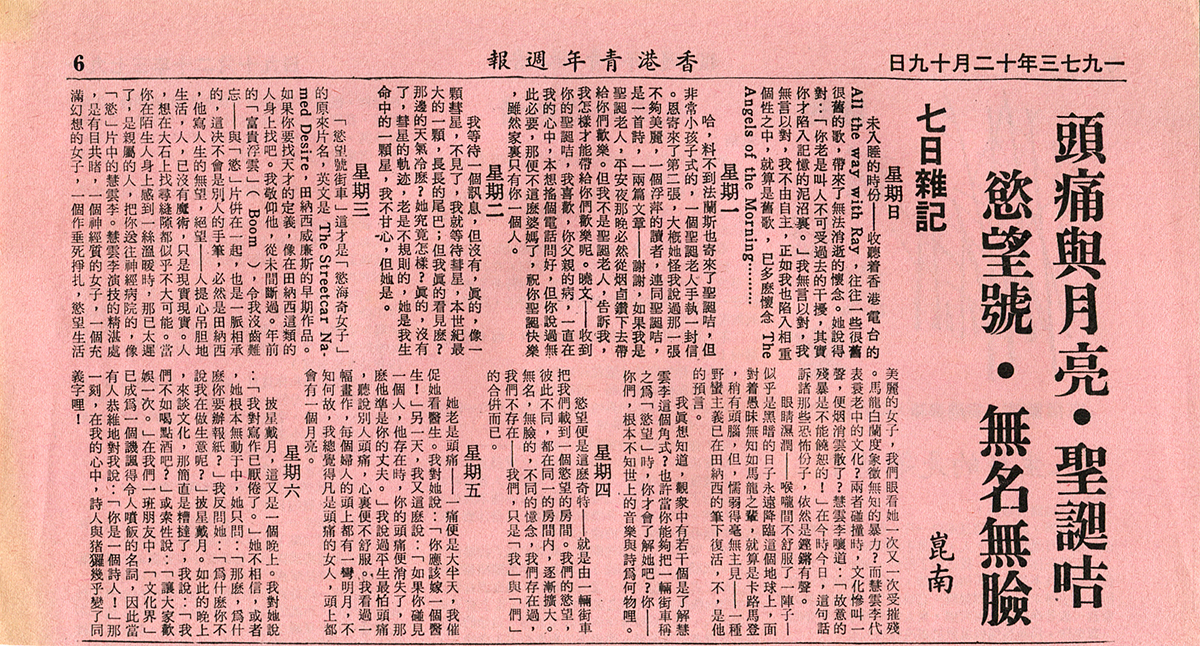 一九七三年十二月十九日
香港青年週報
6
頭痛與月亮・聖誕咭
慾望號・無名無臉
崑南
七日雜記
星期日
未入睡的時份——收聽着香港電台的
All the way with Ray，往往一些很舊
很舊的歌，帶來了無法消逝的懷念。她說得
對：「你老是叫人不可受過去的干擾，其實
你才陷入記憶的泥沼裏。」我無言以對，我
無言以對，我不由自主，正如我也陷入相重
個性之中，就算是舊歌，已多麼懷念 The
Angels of the Morning………
星期一
哈，料不到法蘭斯也寄來了聖誕咭，但
非常小孩子式的，一個聖誕老人手執一封信
。恩寄來了第二張，大概她怪我說過那一張
不夠美麗，一個浮萍的讀者，連同聖誕咭，
是一首詩，一兩篇文章——謝謝，如果我是
聖誕老人，平安夜那晚必然從烟卣鑽下去帶
給你們歡樂。但我不是聖誕老人，告訴我，
我怎樣才能帶給你們歡樂呢。曉文——收到
你的聖誕咭，我喜歡，你父親的病，一直在
我的心中，本想搖個電話問好，但你說過無
此必要，那便不這麼婆媽了，祝你聖誕快樂
，雖然家裏只有你一個人。
星期二
我等待一個訊息，但沒有，眞的，像一
顆彗星，不見了，我就等待彗星，本世紀最
大的一顆，長長的尾巴，但我眞的看見麼？
那邊的天氣冷麼？她究竟怎樣？眞的，沒有
了，彗星的軌迹，老是不規則的，她是我生
命中的一顆星，我不甘心，但她是。
星期三
「慾望號街車」這才是「慾海奇女子」
的原來片名，英文是 The Streetcar Na-
med Desire，田納西威廉斯的早期作品。
如果你要找天才的定義，像在田納西這類的
人身上找吧。我敬仰他，從未間斷過。年前
的「富貴浮雲」（Boom），令我沒齒難
忘——與「慾」片併在一起，也是一脈相承
的，這决不會是別人的手筆，必然是田納西
，他寫人生的無望，絕望——人提心吊胆地
生活，人，已沒有魔術，只是現實現實。人
，想在大石上找尋縫隙都似乎不大可能。當
你在陌生人身上感到一絲溫暖時，那已太遲
了，是親屬的人，把你送往神經病院的，像
「慾」片中的慧雲李。慧雲李演技的精湛處
，是有目共睹，一個神經質的女子，一個充
滿幻想的女子，一個作垂死掙扎，慾望生活
美麗的女子，我們眼看她一次又一次受摧殘
。馬龍白蘭度象徵無知的暴力？而慧雲李代
表衰老中的文化？兩者碰撞時，文化慘叫一
聲，便烟消雲散了？慧雲李嚷道：「故意的
殘暴是不能饒恕的！」在今時今日，這句話
訴諸那些恐怖份子，依然是鏗鏘有聲。
眼睛濕潤——喉嚨間不舒服了一陣子—
似乎是黑暗的日子永遠降臨這個地球上，面
對着愚昧無知如馬龍之輩，就算是卡路馬登
，稍有頭腦，但，懦弱得毫無主見——一種
野蠻主義已在田納西的筆下復活，不，是他
的預言。
我眞想知道，觀衆中有若干個是了解慧
雲李這個角式？也許當你能夠把一輛街車稱
之爲「慾望」時，你才會了解她吧？你——
你們，根本不知世上的音樂與詩爲何物哩。
星期四
慾望便是這麼奇特——就是由一輛街車
把我們載到一個慾望的房間。我們的慾望，
彼此不同，都在同一的房間內，逐漸擴大。
無名，無臉的，不同的憶念，我們存在過，
我們不存在——我們，只是「我」與「們」
的合併而已。
星期五
她老是頭痛——一痛便是大半天，我催
促她看醫生。我對她說：「你應該嫁一個醫
生！」另一天，我又這麼說：「如果你碰見
一個人，他存在時，你的頭痛便消失了，那
麼他準是你的丈夫。」我說過平生最怕頭痛
，聽說別人頭痛，心裏便不舒服。我看過一
幅畫作，每個婦人的頭上都有一彎明月，不
知何故，我總覺得凡是頭痛的女人，頭上都
會有一個月亮。
星期六
披星戴月，這又是一個晚上。我對她說
：「我對寫作已厭倦了。」她不相信，或者
，她根本無動于中，她只問：「那麼，爲什
麼你要辦報紙？」我反問她：「爲什麼你不
說我在做生意呢？」披星戴月。如此的晚上
，來談文化，那簡直是糟撻了。我說：「我
們不如喝點酒吧？」或衆性說：「讓大家歡
娛一次。」在我們一班朋友中，「文化界」
已成爲一個譏諷得令人噴飯的名詞，因此當
有人恭維地對我說：「你是一個詩人！」那
一刻，在我的心中，詩人與猪玀幾乎變了同
義字哩！